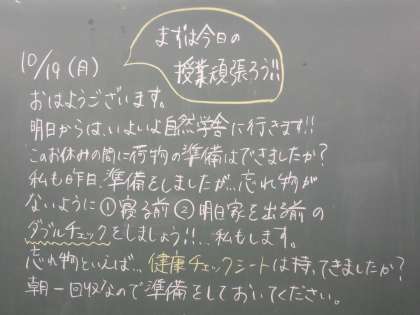 まずは今日の
授業頑張ろう!!
10/19(月)
おはようございます。
明日からは、いよいよ自然学舎に行きます!!
このお休みの間に荷物の準備はできましたか?
私も昨日、準備をしましたが…忘れ物が
ないように①寝る前②明日家を出る前の
ダブルチェックをしましょう!!…私もします。
忘れ物といえば…健康チェックシートは持ってきましたか?
朝一回収なので準備をしておいてください。